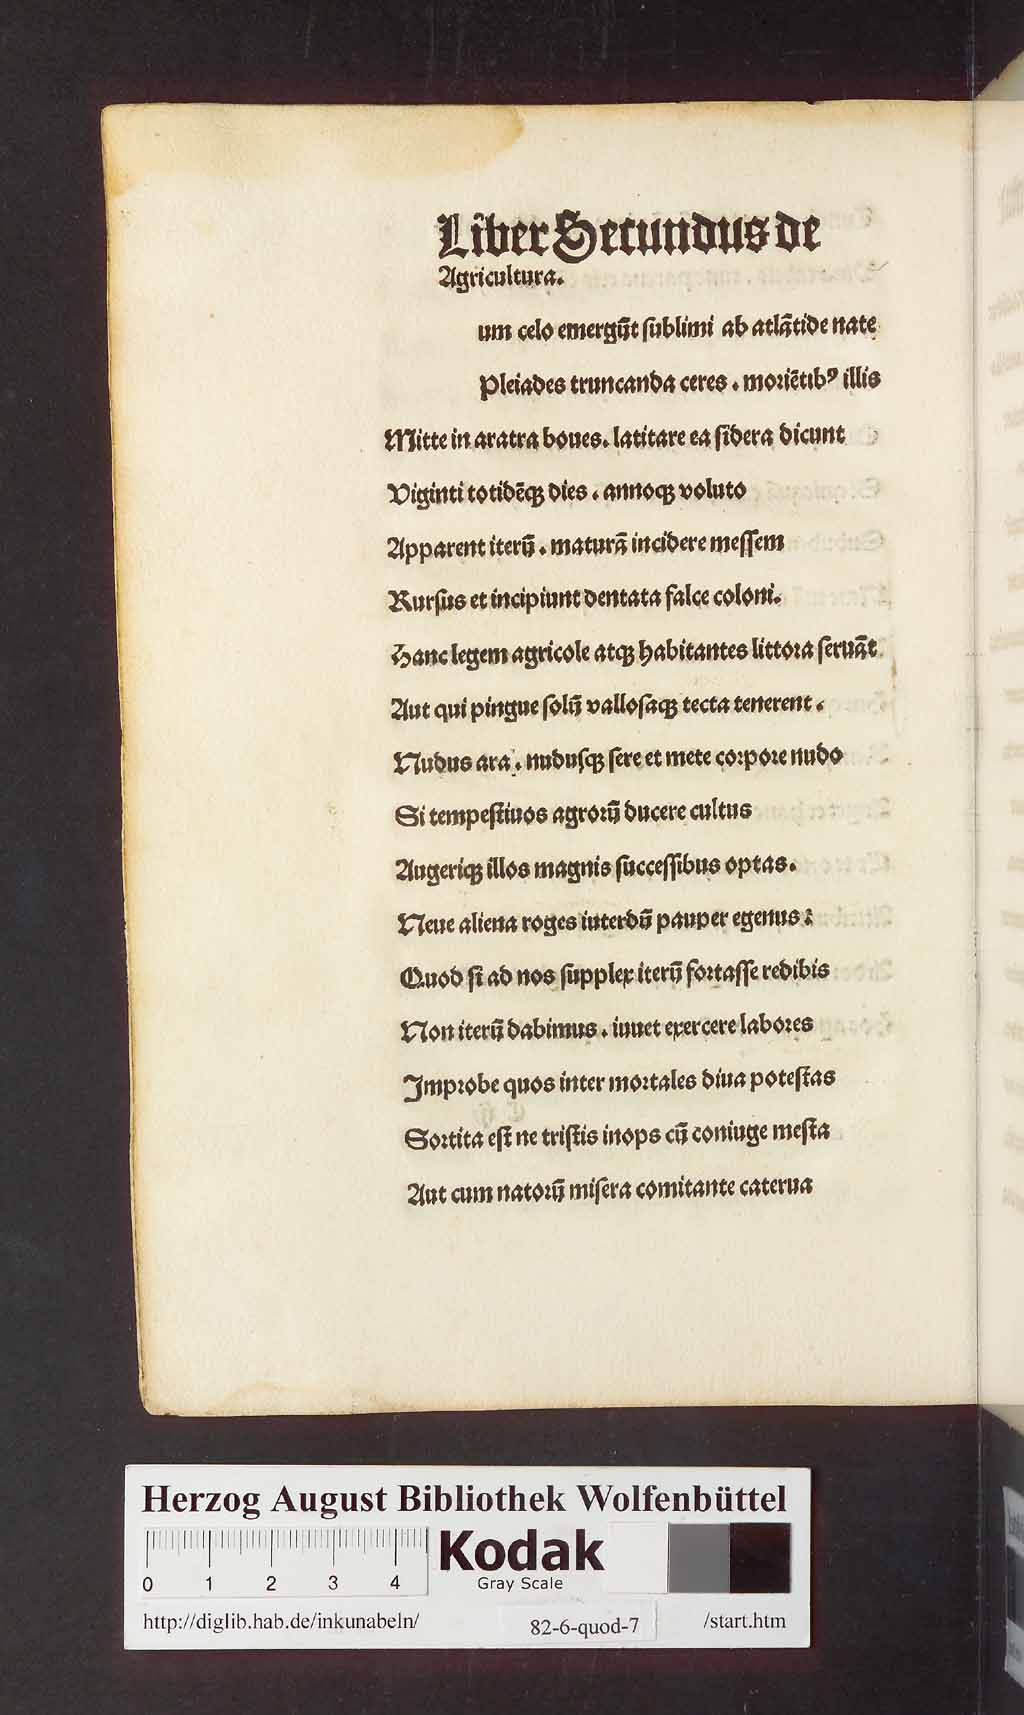 Liber Secundus de
Agricultura.
um celo emergũt ſublimi ab atlãtide nate
Pleiades truncanda ceres . moriẽtibꝰ illis
Mitte in aratra boues. latitare ea ſidera dicunt
Viginti totidẽqꝫ dies . annoqꝫ voluto
Apparent iterũ . maturã incidere meſſem
Rurſus et incipiunt dentata falce coloni.
Hanc legem agricole atqꝫ habitantes littora ſeruãt
Aut qui pingue ſolũ valloſaqꝫ tecta tenerent .
Nudus ara . nuduſqꝫ ſere et mete corpore nudo
Si tempeſtiuos agrorũ ducere cultus
Augeriqꝫ illos magnis ſucceſſibus optas.
Neue aliena roges iuterdũ pauper egenus :
Quod ſi ad nos ſupplex iterũ fortaſſe redibis
Non iterũ dabimus . iuuet exercere labores
Improbe quos inter mortales diua poteſtas
Sortita eſt ne triſtis inops cũ coniuge meſta
Aut cum natorũ miſera comitante caterua
Herzog August Bibliothek Wolfenbüttel
Kodak
Gray Scale
0 1 2 3 4
http://diglib.hab.de/inkunabeln/ 82-6-quod-7 /start.htm